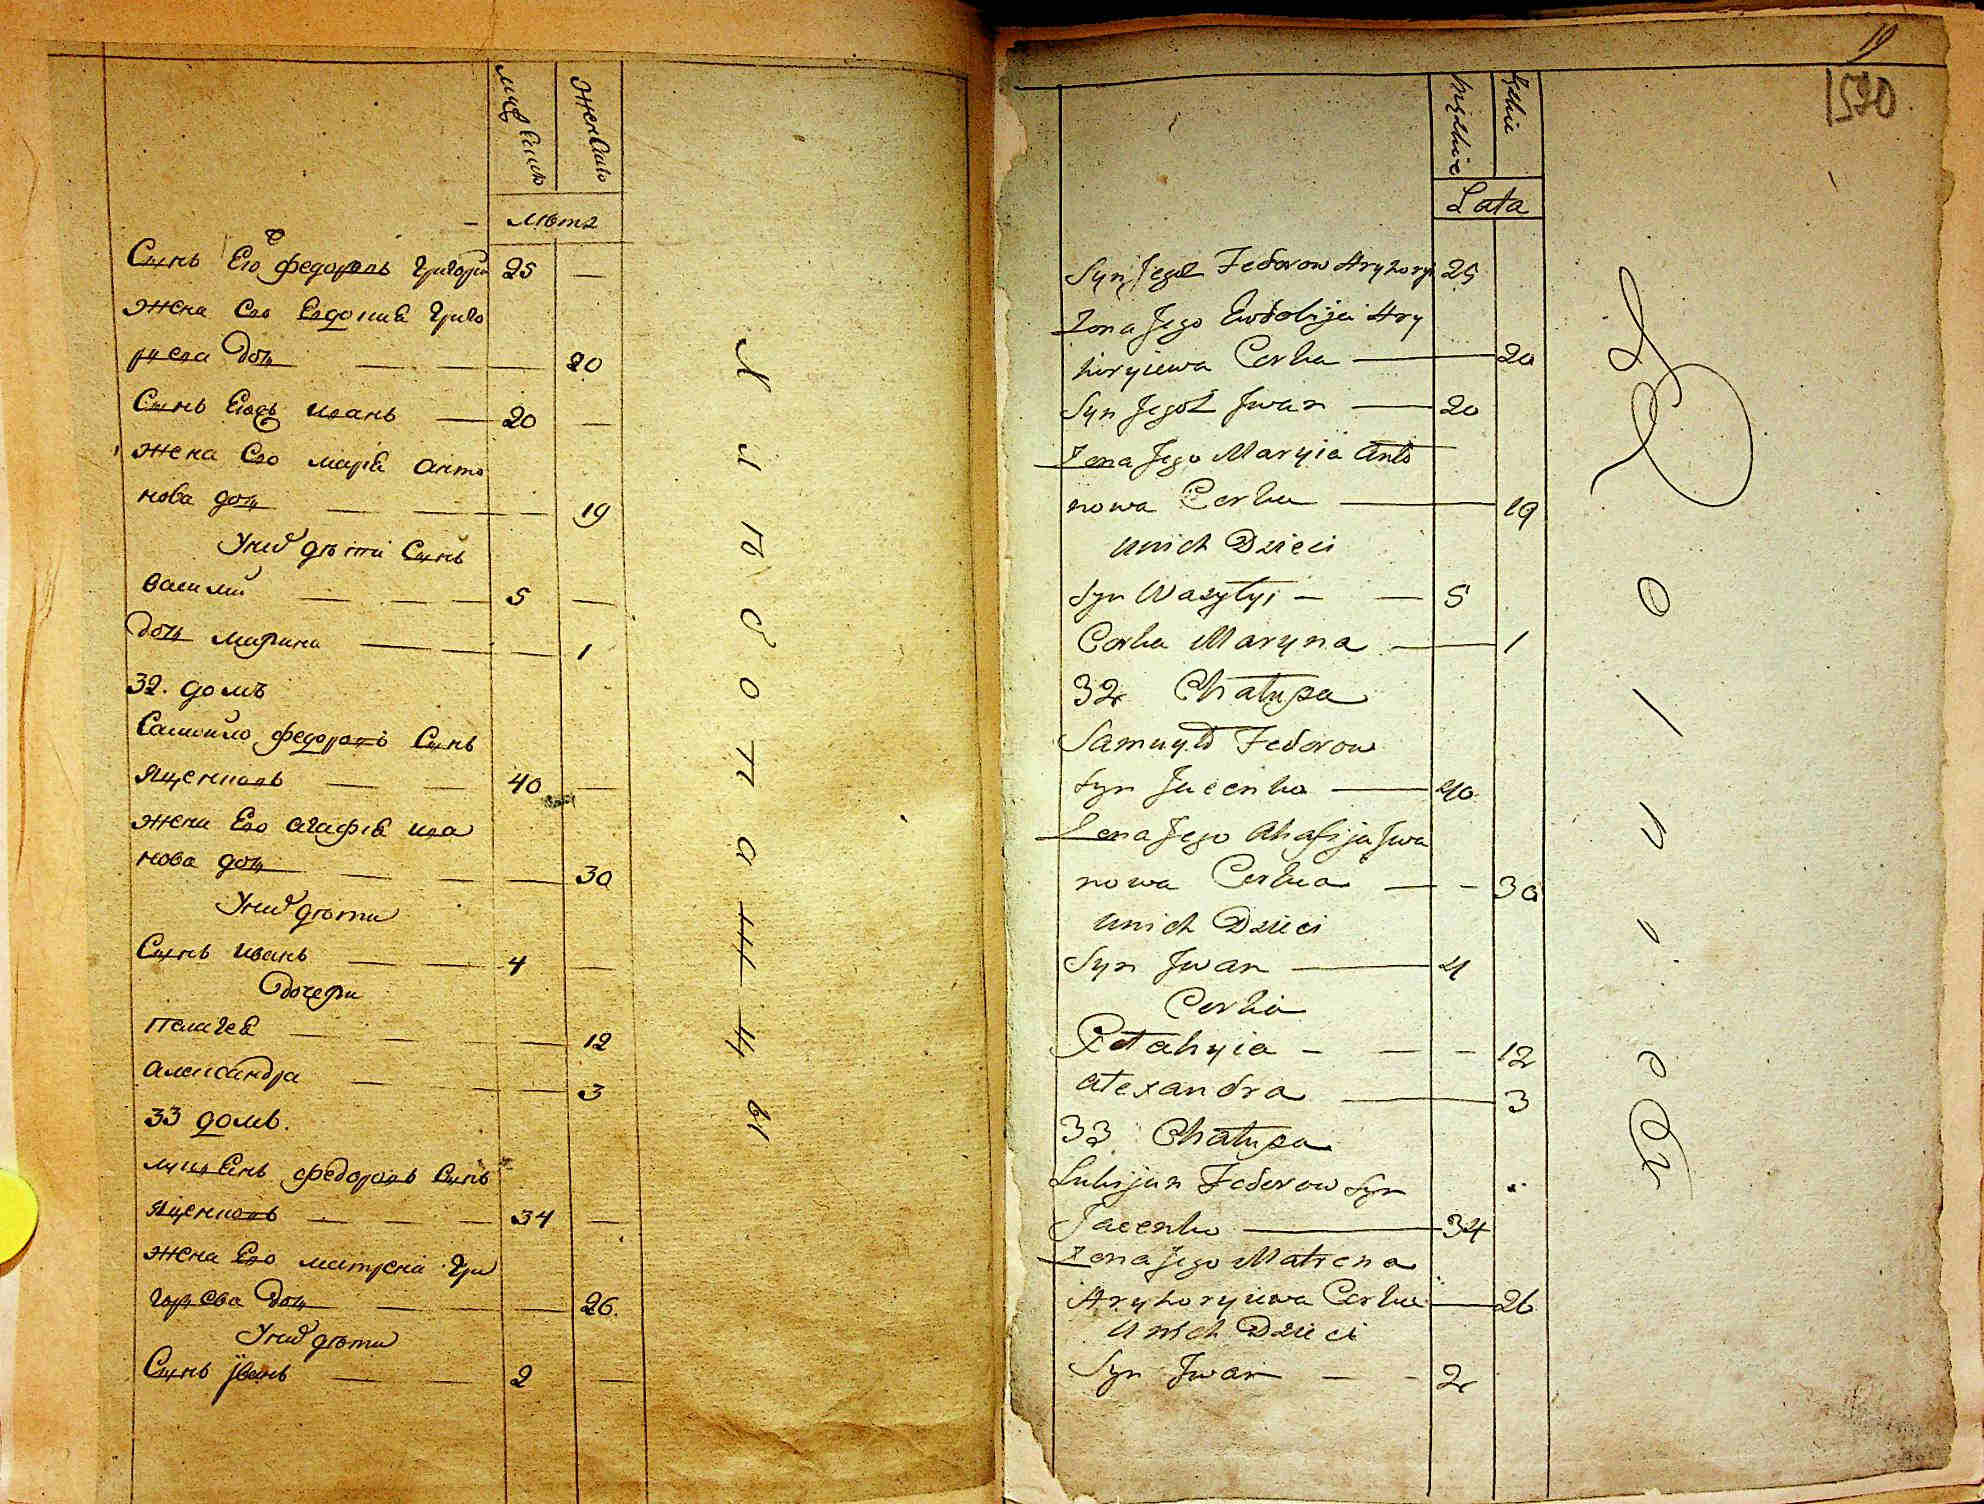 мужеска
женска
лѣта
Сынъ Его федоровъ григори 25 —
жена Его Евдокия Григо
риева доч — 20
Сынъ Иванъ — 20 —
жена Его мария Анто
нова доч — 19
У них дѣти Сынъ
Василий — 5 —
доч марина — 1
32. домъ
Самойло федоровъ Сынъ
Яценковъ — 40 —
жена Его агафия ива
нова доч — 30
У них дѣти
Сынъ иванъ — 4 —
дочери
Пелагея — 12
александра — 3
33 домъ.
лукьянъ федоровъ Сынъ
Яценковъ — 34 —
жена Его матрена Гри
горьева доч — 26.
У них дѣти
Сынъ Иванъ — 2 —
19
1570
Męzkie
Zęskie
Lata
Syn Jego Fedorow Hryhory 25
Zona Jego Ewdokija Hry
horyiewa Corka — 20
Syn Jwan — 20
Zona Jego Maryia Anto
nowa Corka — 19
Unich Dzieci
Syn Wasylyi — 5
Corka Maryna — 1
32 Chatupa
Samuyło Fedorow
Syn Jacenko — 40
Zona Jego Ahafija Jwa
nowa Corka — 30
Unich Dzieci
Syn Jwan — 4
Corka
Pelahyia — 12
Alexandra — 3
33 Chatupa
Lukijan Fedorow Syn
Jacenko — 34
Zona Jego Matrena
Hryhoryiewa Corka — 26
Unich Dzieci
Syn Jwan — 2